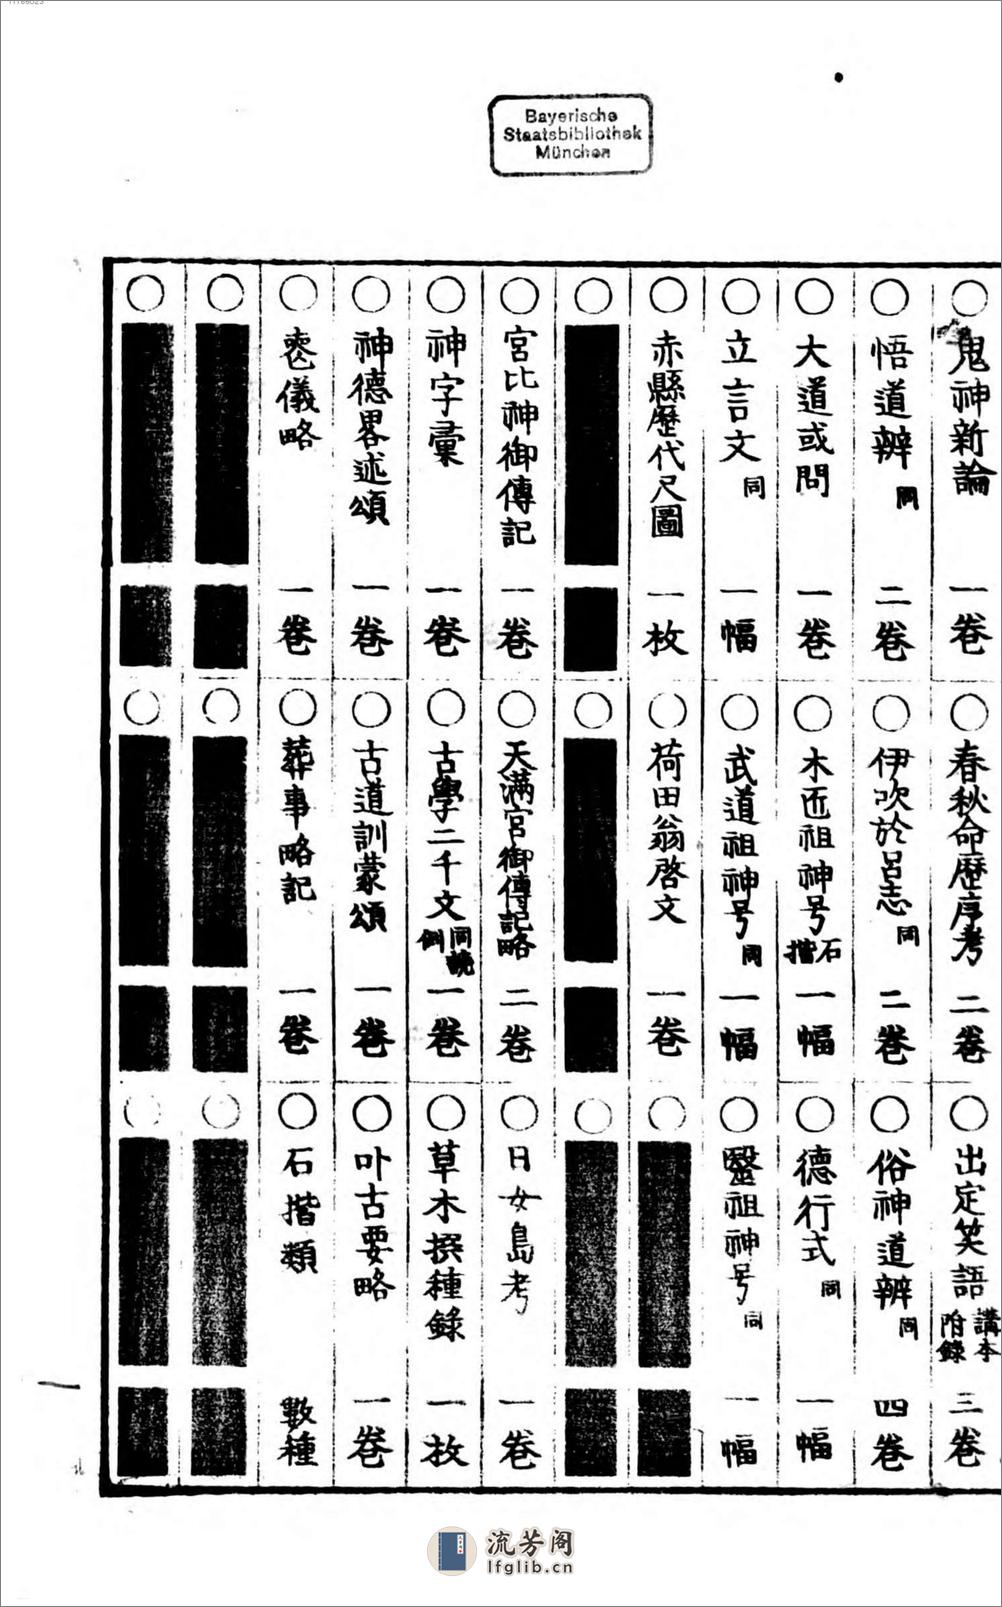 11786023
Bayerische
Staatsbibliothek
München
鬼神新論 一卷
悟道辨 同 二卷
大道或問 一卷
立言文 同 一幅
赤縣歷代尺圖 一枚
宮比神御傳記 一卷
神字彙 一卷
神德畧述頌 一卷
喪儀略 一卷
春秋命歷序考 二卷
伊吹於呂志 同 二卷
木匠祖神号 石摺 一幅
武道祖神号 同 一幅
荷田翁啓文 一卷
天滿宮御傳記略 二卷
古學二千文 同 一卷
古道訓蒙頌 一卷
葬事略記 一卷
出定笑語 講本附錄 三卷
俗神道辨 同 四卷
德行式 同 一幅
醫祖神号 同 一幅
日女島考 一卷
草木撰種錄 一枚
叶古要略 一卷
石摺類 數種
一
流芳阁
lfglib.cn